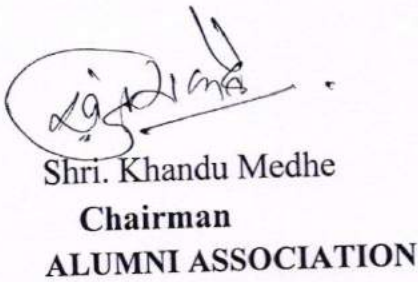 Shri. Khandu Medhe
Chairman
ALUMNI ASSOCIATION